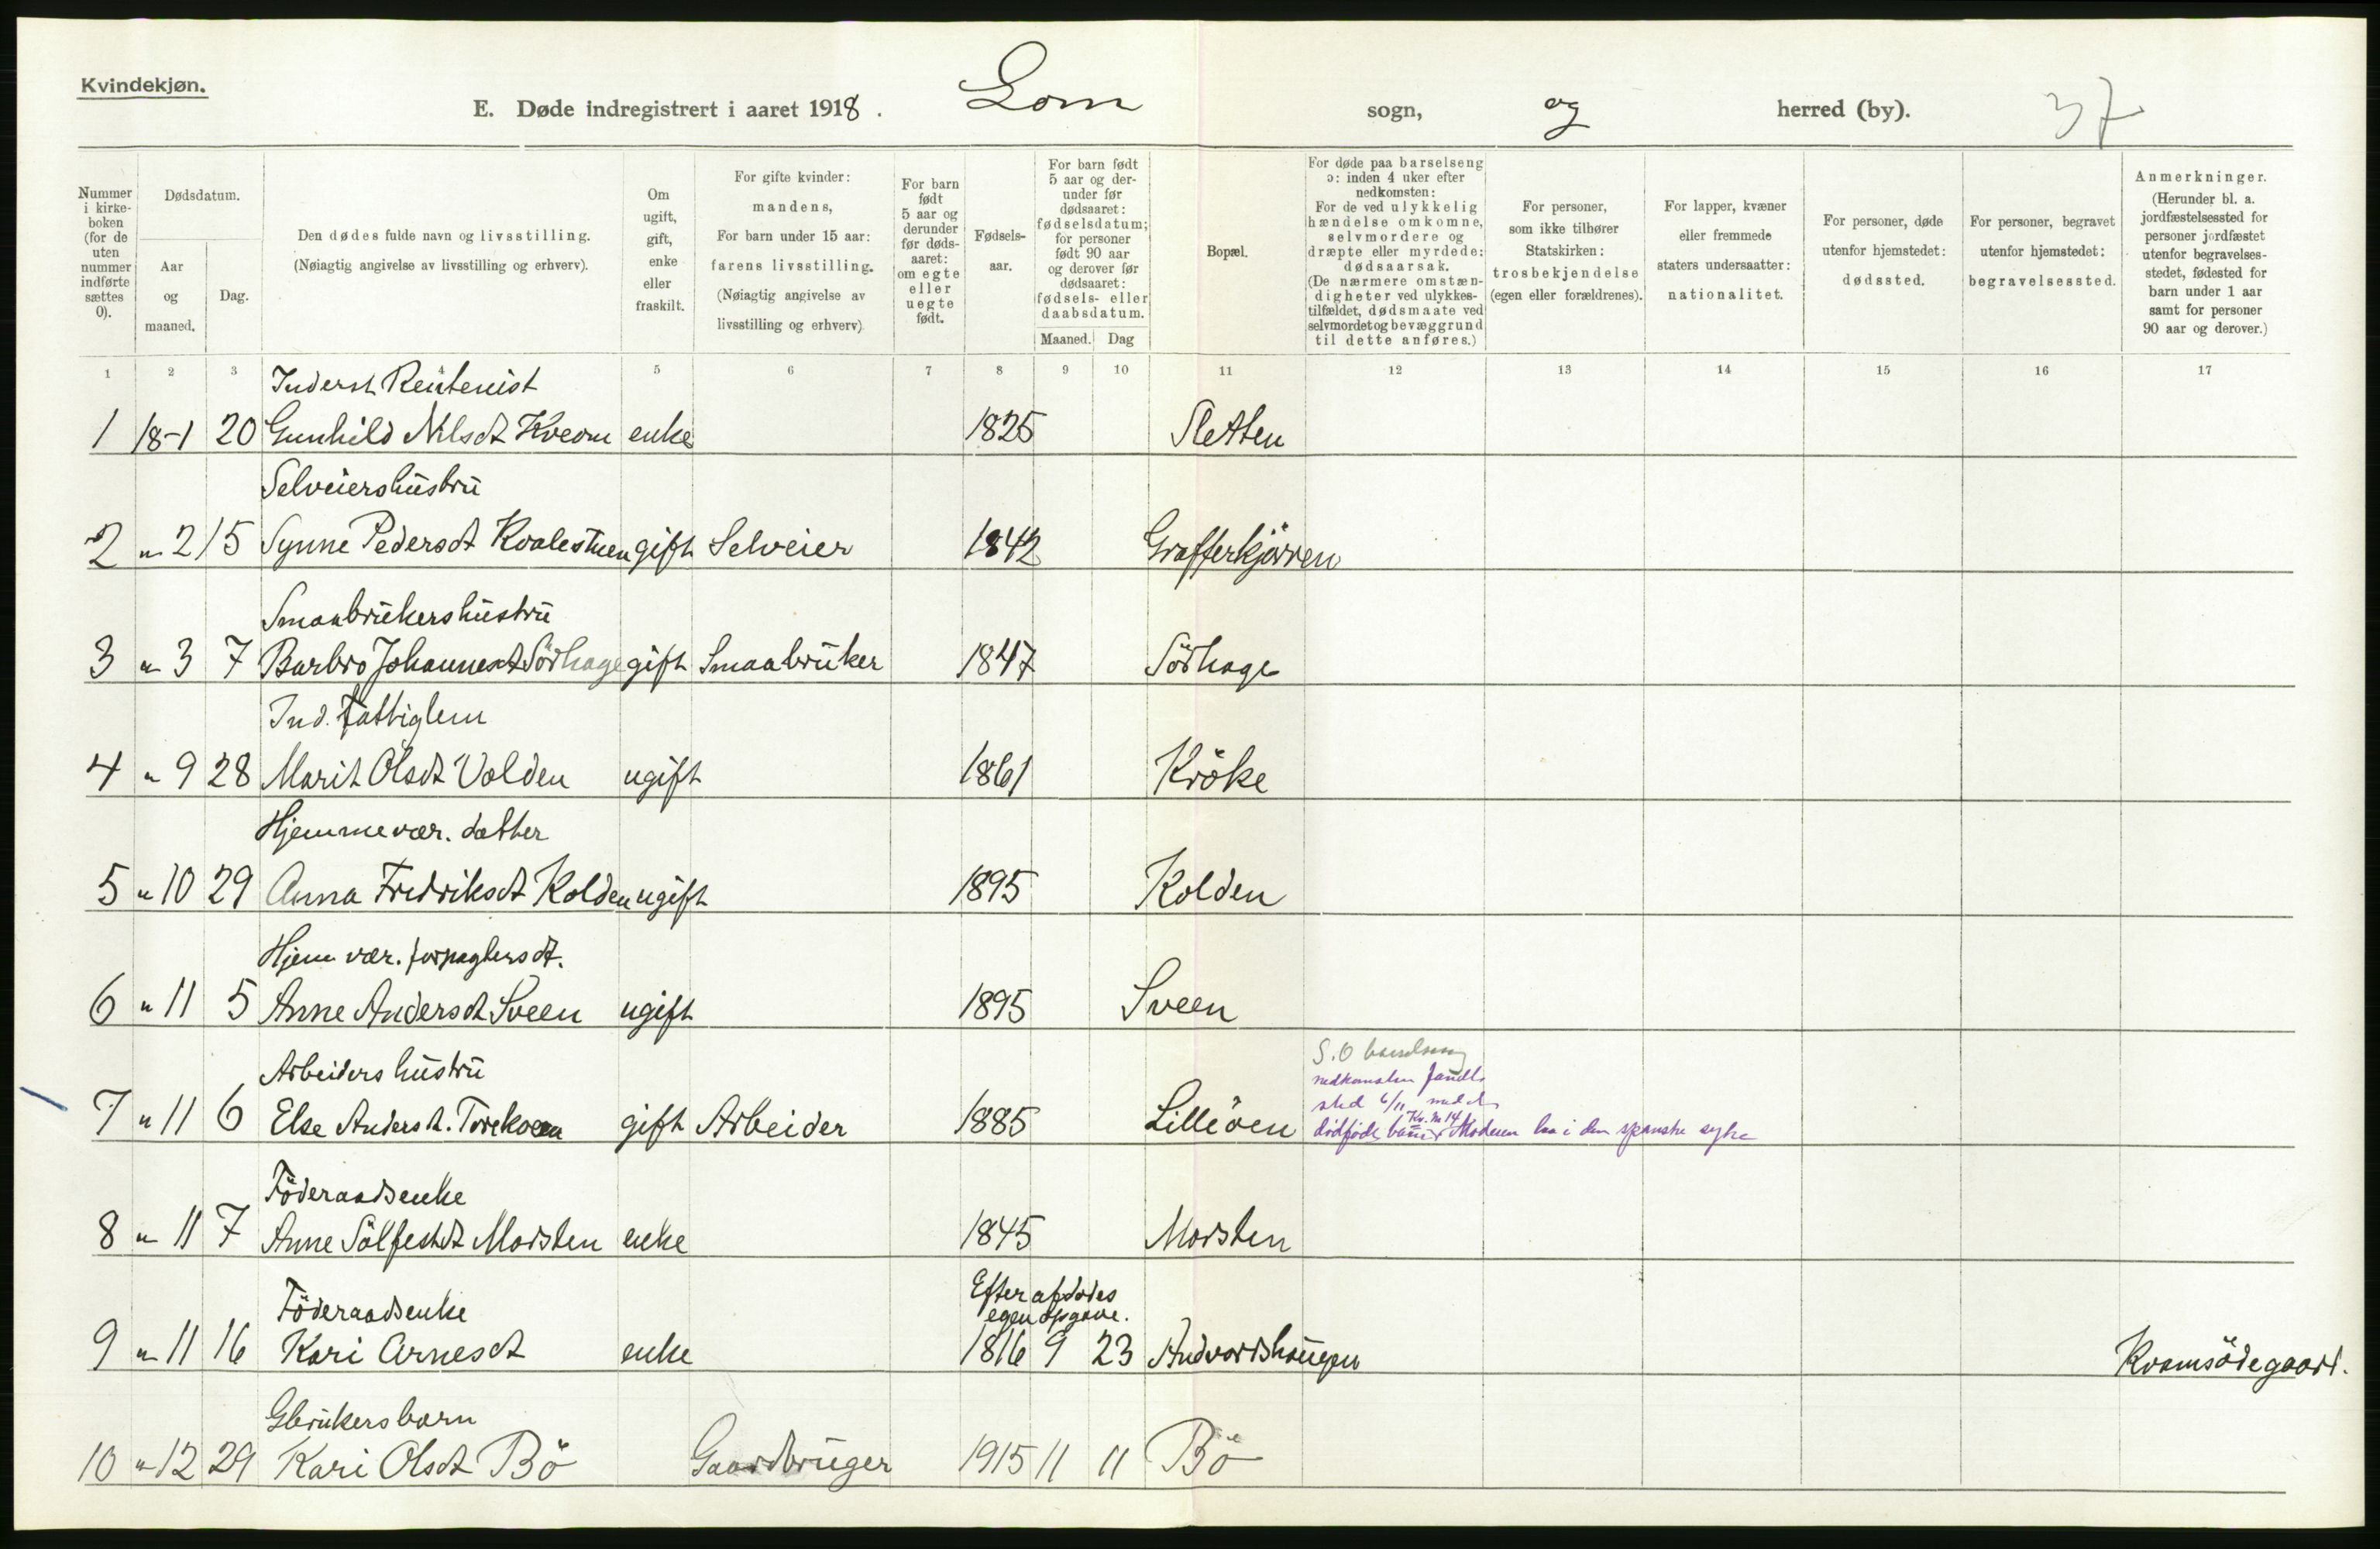 Kvindekjøn.
E. Døde indregistrert i aaret 1918. Lom sogn, og herred (by). 37
Nummer i kirkeboken (for de uten nummer indførte sættes 0).
Dødsdatum.
Aar og maaned.
Dag.
Den dødes fulde navn og livsstilling.
(Nøiagtig angivelse av livsstilling og erhverv).
Om ugift, gift, enke eller fraskilt.
For gifte kvinder: mandens,
For barn under 15 aar: farens livsstilling.
(Nøiagtig angivelse av livsstilling og erhverv)
For barn født 5 aar og derunder før dødsaaret: om egte eller uegte født.
Fødselsaar.
For barn født 5 aar og derunder før dødsaaret: fødselsdatum; for personer født 90 aar og derover før dødsaaret: fødsels- eller daabsdatum.
Maaned. Dag
Bopæl.
For døde paa barselseng ɔ: inden 4 uker efter nedkomsten:
For de ved ulykkelig hændelse omkomne, selvmordere og dræpte eller myrdede: dødsaarsak.
(De nærmere omstændigheter ved ulykkestilfældet, dødsmaate ved selvmordet og bevæggrund til dette anføres.)
For personer, som ikke tilhører Statskirken: trosbekjendelse (egen eller forældrenes).
For lapper, kvæner eller fremmede staters undersaatter: nationalitet.
For personer, døde utenfor hjemstedet: dødssted.
For personer, begravet utenfor hjemstedet: begravelsessted.
Anmerkninger.
(Herunder bl. a. jordfæstelsessted for personer jordfæstet utenfor begravelsesstedet, fødested for barn under 1 aar samt for personer 90 aar og derover.)
1 2 3 4 5 6 7 8 9 10 11 12 13 14 15 16 17
Inderst Rentenist
1 18-1 20 Gunhild Nilsdt Kveom enke 1825 Sletten
Selveiershustru
2 " 2 15 Synne Pedersdt Kvalestuen gift Selveier 1842 Grafferkjörren
Smaabrukershustru
3 " 3 7 Barbro Johannesdt Sörhage gift Smaabruker 1847 Sörhage
Ind. fattiglem
4 " 9 28 Marit Olsdt Volden ugift 1861 Kröke
Hjemmevær. datter
5 " 10 29 Anna Fredriksdt Kolden ugift 1895 Kolden
Hjem vær. forpagtersdt.
6 " 11 5 Anne Andersdt Sveen ugift 1895 Sveen
Arbeiders hustru
S.O barselseng
nedkomsten fandt
sted 6/11 med et
7 " 11 6 Else Andersdt. gift Arbeider 1885 Lilleöen dödfödt barn Kv. № 14 Moderen laa i den spanske syke
Föderaadsenke
8 " 11 7 Anne Sölfestdt Morsten enke 1845 Morsten
Efter afdödes
egen opgave.
Föderaadsenke
9 " 11 16 Kari Arnesdt enke 1816 9 23 Andvordshaugen Kvamsödegaard.
Gbrukers barn
10 " 12 29 Kari Olsdt Bö Gaardbruger 1915 11 11 Bö